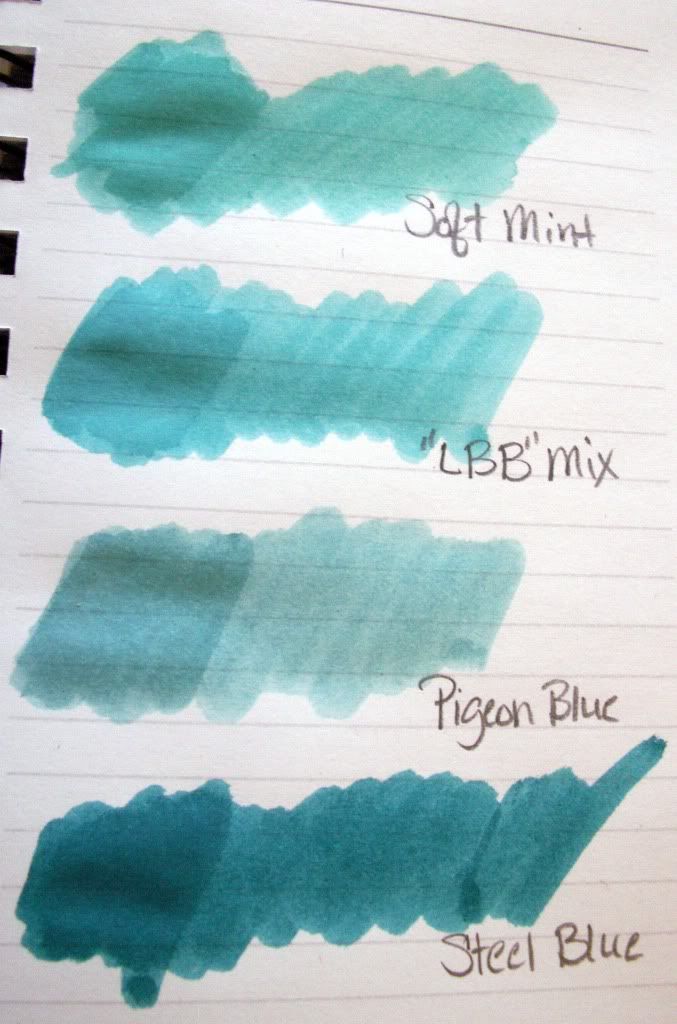 Soft Mint
"LBB" mix
Pigeon Blue
Steel Blue